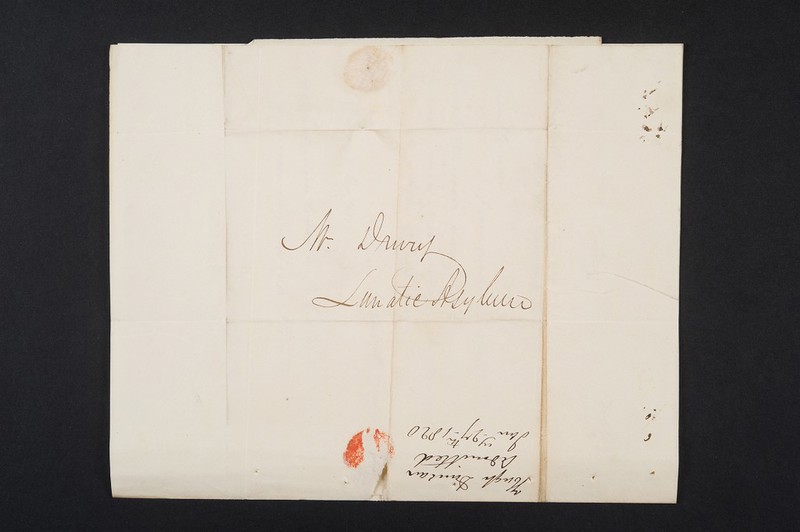 Mr. Drury
Lunatic Asylum
Hugh Duncan
Admitted
Jan.y 29th 1820